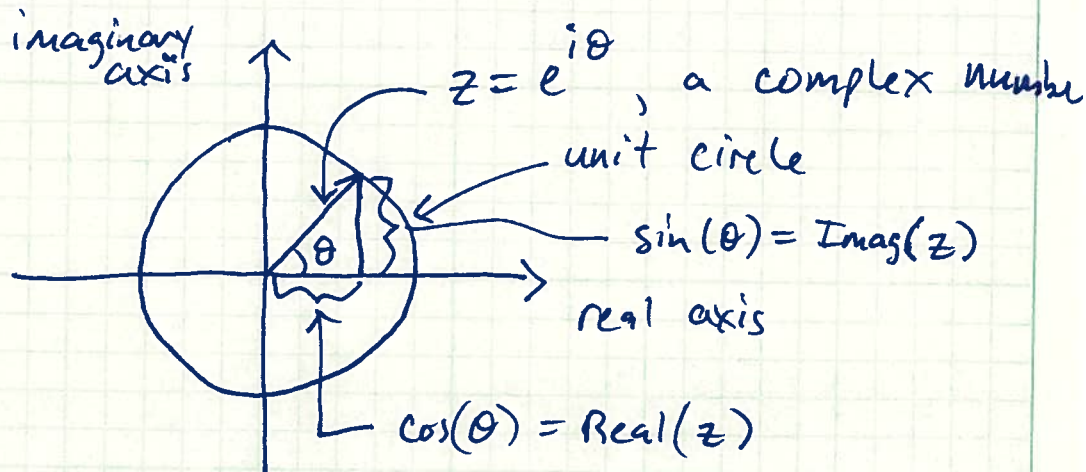 imaginary
axis
z = e^{iθ}, a complex number
unit circle
θ
sin(θ) = Imag(z)
real axis
cos(θ) = Real(z)